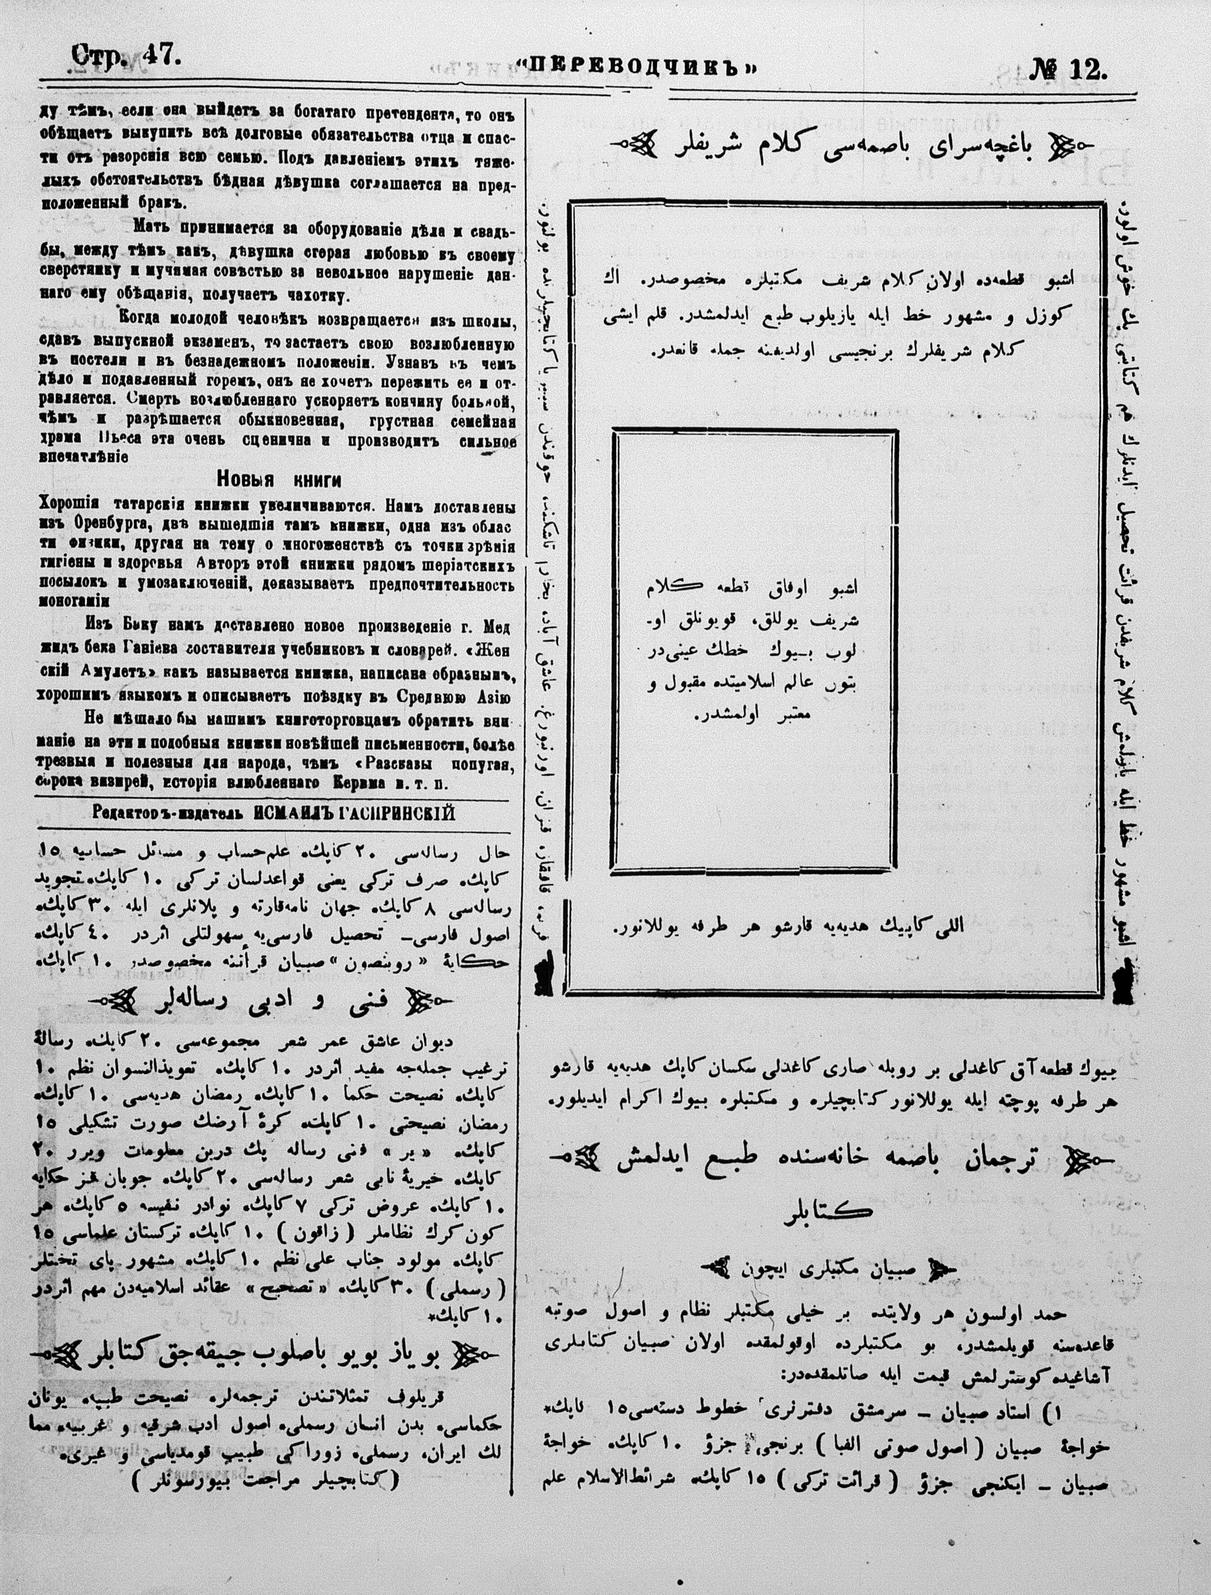 Стр. 47.
«ПЕРЕВОДЧИКЪ»
№ 12.
ду тѣмъ, если она выйдетъ за богатаго претендента, то онъ
обѣщаетъ выкупить всѣ долговые обязательства отца и спас-
ти отъ разоренія всю семью. Подъ давленіемъ этихъ тяже-
лыхъ обстоятельствъ бѣдная дѣвушка соглашается на пред-
положенный бракъ.
Мать принимается за оборудованіе дѣла и свадь-
бы, между тѣмъ какъ, дѣвушка сгорая любовью къ своему
сверстнику и мучимая совѣстью за невольное нарушеніе дан-
наго ему обѣщанія, получаетъ чахотку.
Когда молодой человѣкъ возвращается изъ школы,
сдавъ выпускной экзаменъ, то застаетъ свою возлюбленную
въ постели и въ безнадежномъ положеніи. Узнавъ въ чемъ
дѣло и подавленный горемъ, онъ не хочетъ пережить ее и от-
равляется. Смерть возлюбленнаго ускоряетъ кончину больной,
чѣмъ и разрѣшается обыкновенная, грустная семейная
драма Пьеса эта очень сценична и производитъ сильное
впечатлѣніе
Новыя книги
Хорошія татарскія книжки увеличиваются. Намъ доставлены
изъ Оренбурга, двѣ вышедшія тамъ книжки, одна изъ облас
ти физики, другая на тему о многоженствѣ съ точки зрѣнія
гигіены и здоровья Авторъ этой книжки рядомъ шеріатскихъ
посылокъ и умозаключеній, доказываетъ предпочтительность
моногаміи
Изъ Баку намъ доставлено новое произведеніе г. Мед
жидъ бека Ганіева составителя учебниковъ и словарей. «Жен
скій Амулетъ» какъ называется книжка, написана образнымъ,
хорошимъ языкомъ и описываетъ поѣздку въ Среднюю Азію
Не мѣшало бы нашимъ книготорговцамъ обратить вни
маніе на эти и подобныя книжки новѣйшей письменности, болѣе
трезвыя и полезныя для народа, чѣмъ «Разсказы попугая,
сорока визирей, исторія влюбленнаго Керима и. т. п.
Редакторъ-издатель ИСМАИЛЪ ГАСПРИНСКІЙ
حال رساله‌سی ٢٠ كاپك. علم‌حساب و مسائل حسابیه ١٥
كاپك. صرف تركی یعنی قواعدلسان تركی ١٠ كاپك. تجوید
رساله‌سی ٨ كاپك. جهان نامه‌قارته و پلانلری ایله ٣٠ كاپك.
اصول فارسی– تحصیل فارسی‌یه سهولتلی اثردر ٤٠ كاپك.
حكایهٔ «روبنصون» صبیان قرأتنه مخصوصدر ١٠ كاپك.
فنی و ادبی رساله‌لر
دیوان عاشق عمر شعر مجموعه‌سی ٢٠ كاپك. رسالهٔ
ترغیب جمله‌جه مفید اثردر ١٠ كاپك. تعویذالنسوان نظم ١٠
كاپك. نصیحت حكما ١٠ كاپك. رمضان هدیه‌سی ١٠ كاپك.
رمضان نصیحتی ١٠ كاپك. كرهٔ آرضك صورت تشكیلی ١٥
كاپك. «بر» فنی رساله پك درین معلومات ویرر ٢٠
كاپك. خیریهٔ نابی شعر رساله‌سی ٢٠ كاپك. جوبان قز حكایه
١٠ كاپك. عروض تركی ٧ كاپك. نوادر نفیسه ٥ كاپك. هر
كون كرك نظاملر (زاقون) ١٠ كاپك. تركستان علماسی ١٥
كاپك. مولود جناب علی نظم ١٠ كاپك. مشهور پای تختلر
(رسملی) ٣٠ كاپك. «تصحیح» عقائد اسلامیه‌دن مهم اثردر
١٠ كاپك.
بو یاز بویو باصلوب جیقه‌جق كتابلر
قریلوف تمثلاتندن ترجمه‌لر. نصیحت طبیه. یونان
حكماسی. بدن انسان رسملی. اصول ادب شرقیه و غربیه. مما
لك ایران، رسملی. زوراكی طبیب قومدیاسی و غیری.
(كتابچیلر مراجعت بیورسونلر)
باغچه‌سرای باصمه‌سی كلام شریفلر
اشبو قطعه‌ده اولان كلام شریف مكتبلره مخصوصدر. اك
كوزل و مشهور خط ایله یازیلوب طبع ایدلمشدر. قلم ایشی
كلام شریفلرك برنجیسی اولدیغنه جمله قانعدر.
اشبو اوفاق قطعه كلام
شریف یوللق، قویونلق او-
لوب بیوك خطك عینی‌در
بتون عالم اسلامیتده مقبول و
معتبر اولمشدر.
اللی كاپیك هدیه‌یه قارشو هر طرفه یوللانور.
اشبو مشهور خط ایله یازلمش كلام شریفدن قرائت تحصیل ایدنلرك هم كتابتی پك خوش اولور.
بیوك قطعه آق كاغدلی بر روبله صاری كاغدلی سكسان كاپك هدیه‌یه قارشو
هر طرفه پوچته ایله یوللانور كتابچیلره و مكتبلره بیوك اكرام ایدیلور.
ترجمان باصمه خانه‌سنده طبع ایدلمش
كتابلر
صبیان مكتبلری ایچون
حمد اولسون هر ولایتده بر خیلی مكتبلر نظام و اصول صوتیه
قاعده‌سنه قویلمشدر. بو مكتبلرده اوقولمقده اولان صبیان كتابلری
آشاغیده كوسترلمش قیمت ایله صاتلمقده‌در:
١) استاد صبیان – سرمشق دفترلری خطوط دسته‌سی ١٥ كاپك.
خواجهٔ صبیان (اصول صوتی الفبا) برنجی جزؤ ١٠ كاپك. خواجهٔ
صبیان – ایكنجی جزؤ (قرائت تركی) ١٥ كاپك. شرائط‌الاسلام علم